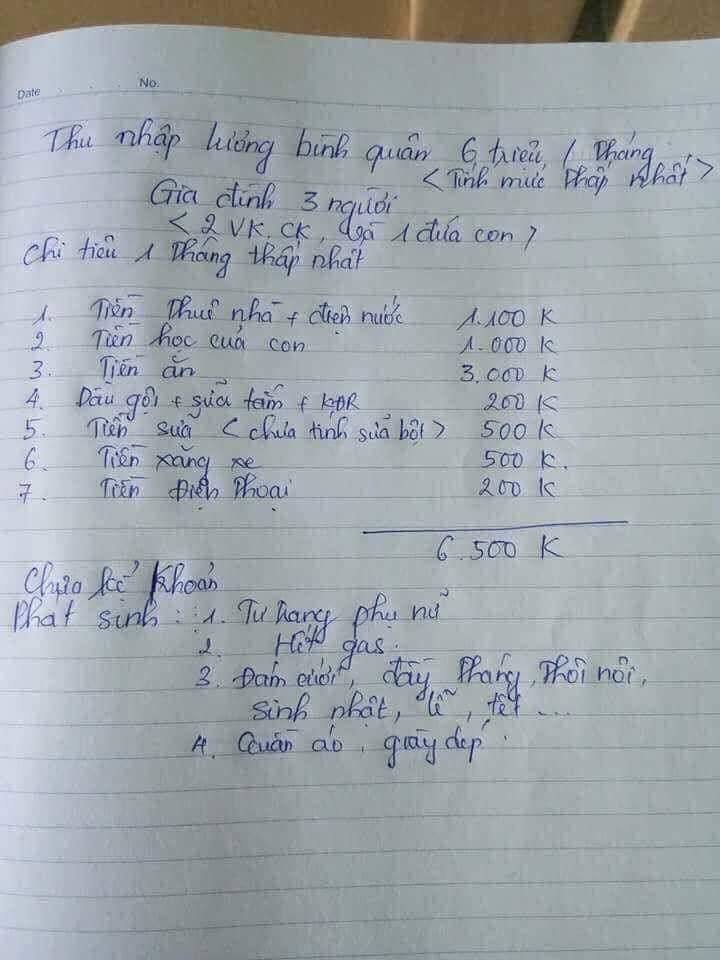 Date No.
Thu nhập lương bình quân 6 triệu / tháng
< Tính mức thấp nhất >
Gia đình 3 người
< 2 VK.CK, và 1 đứa con >
Chi tiêu 1 tháng thấp nhất
1. Tiền thuê nhà + điện nước 1.100 K
2. Tiền học của con 1.000 K
3. Tiền ăn 3.000 K
4. Dầu gội + sữa tắm + KĐR 200 K
5. Tiền sữa < chưa tính sữa bột > 500 K
6. Tiền xăng xe 500 K.
7. Tiền Điện thoại 200 K
6.500 K
Chưa kể khoản
Phát sinh: 1. Tư trang phụ nữ
2. Hết gas.
3. Đám cưới, đầy tháng, thôi nôi,
sinh nhật, lễ, tết ...
4. Quần áo, giày dép.